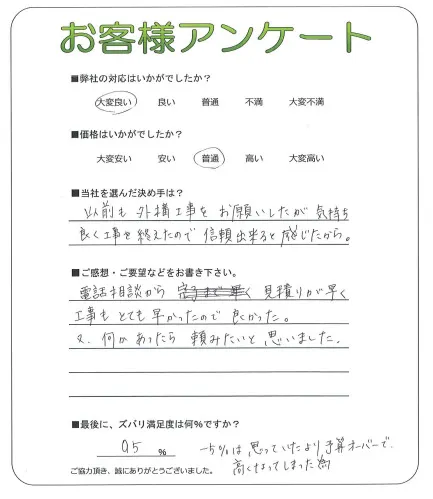 お客様アンケート
■弊社の対応はいかがでしたか？
大変良い 良い 普通 不満 大変不満
■価格はいかがでしたか？
大変安い 安い 普通 高い 大変高い
■当社を選んだ決め手は？
以前も外構工事をお願いしたが気持ち
良く工事を終えたので信頼出来ると感じたから。
■ご感想・ご要望などをお書き下さい。
電話相談から 見積りが早く
工事もとても早かったので良かった。
又、何かあったら頼みたいと思いました。
■最後に、ズバリ満足度は何％ですか？
95 %
-5%は思っていたより予算オーバーで、
高くなってしまった為
ご協力頂き、誠にありがとうございました。